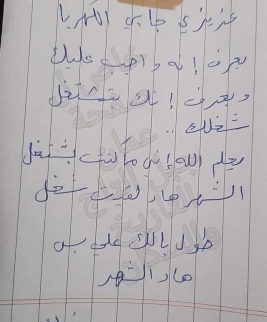 عزيزي جابي الكهربا
بعرف إنه واجب عليك
وبعرف إنك بتشتغل
شغلك ..
يعلم الله إني ما كنت بشتغل
الشهر هاد لقديت شغل
طول بالك علي بس
هاد الشهر